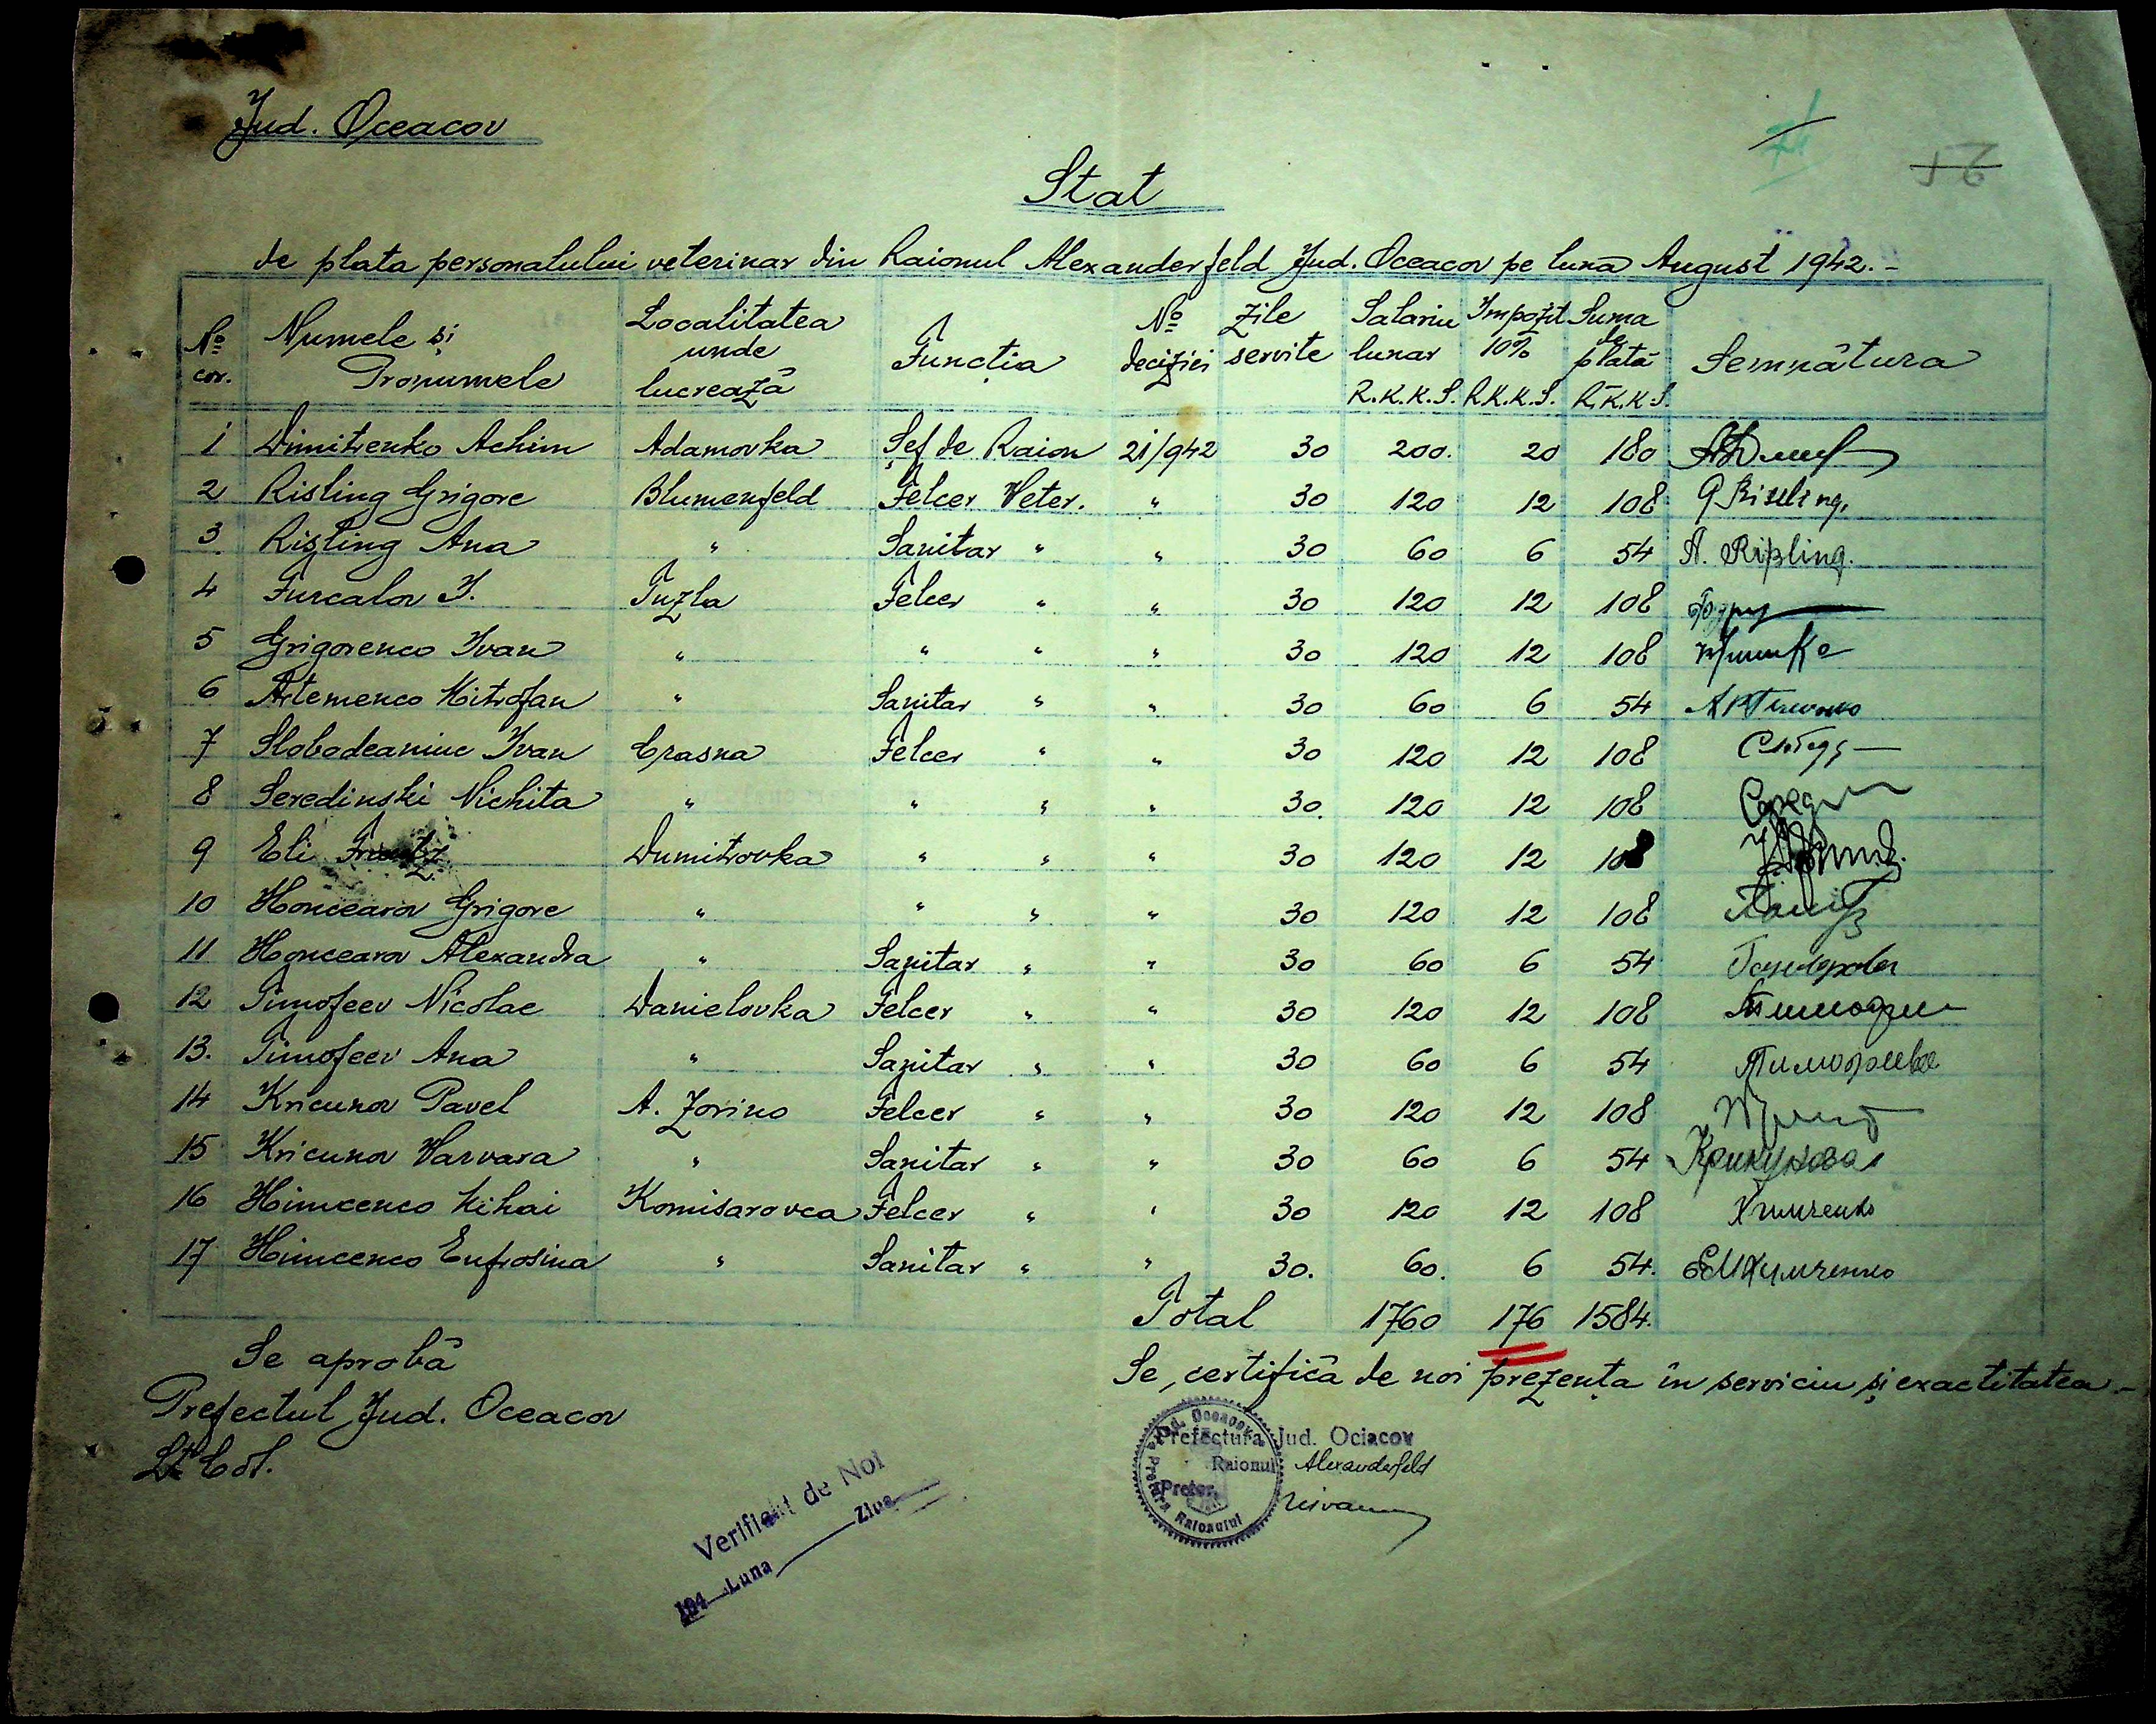 Jud. Oceacov
71
56
Stat
de plata personalului veterinar din Raionul Alexanderfeld Jud. Oceacov pe luna August 1942.-
No cor. Numele și Pronumele Localitatea unde lucrează Funcția No deciziei Zile servite Salariu lunar R.K.K.S. Impozit 10% R.K.K.S. Suma de plată R.K.K.S. Semnătura
1 Dimitrenko Achim Adamovka Șef de Raion 21/942 30 200. 20 180
2 Risling Grigore Blumenfeld Felcer Veter. " 30 120 12 108 G Rissling.
3 Rizling Ana " Sanitar " " 30 60 6 54 A. Rißling.
4 Furcalov I. Tuzla Felcer " " 30 120 12 108
5 Grigorenco Ivan " " " " 30 120 12 108
6 Artemenco Mitrofan " Sanitar " " 30 60 6 54
7 Slobodeaniuc Ivan Crasna Felcer " " 30 120 12 108
8 Seredinski Nichita " " " " 30. 120 12 108
9 Eli Dumitrovka " " " 30 120 12 108
10 Honcearov Grigore " " " " 30 120 12 108
11 Honcearov Alexandra " Sanitar " " 30 60 6 54
12 Timofeev Nicolae Danielovka Felcer " " 30 120 12 108
13. Timofeev Ana " Sanitar " " 30 60 6 54 Тимофеева
14 Kricunov Pavel A. Zorino Felcer " " 30 120 12 108
15 Kricunov Varvara " Sanitar " " 30 60 6 54 Крикунова
16 Himcenco Mihai Komisarovca Felcer " " 30 120 12 108 Химченко
17 Himcenco Eufrosina " Sanitar " " 30. 60. 6 54. Химченко
Total 1760 176 1584.
Se aprobă
Prefectul Jud. Oceacov
Lt Col.
Se certifică de noi prezența în serviciu și exactitatea.-
Jud. Oceacov
Pretura Raionului
Prefectura Jud. Ociacov
Raionul Alexanderfeld
Pretor,
Verificat de Noi
194 Luna Ziua